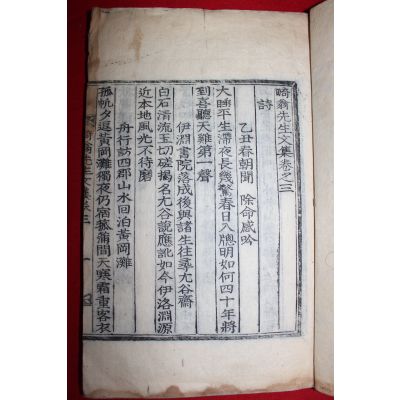 畸翁先生文集卷之三
詩
乙丑春朝聞 除命感吟
大睡平生滯夜長幾驚春日入牕明如何四十年將
到喜聽天雞第一聲
伊淵書院落成後與諸生往尋尤谷齋
白石淸流玉切磋揭名尤谷說應訛如今伊洛淵源
近本地風光不待磨
舟行訪四郡山水回泊黃岡灘
孤帆夕返黃岡灘獨夜仍宿菰蒲間天寒霜重客衣
畸翁先生文集卷三 一